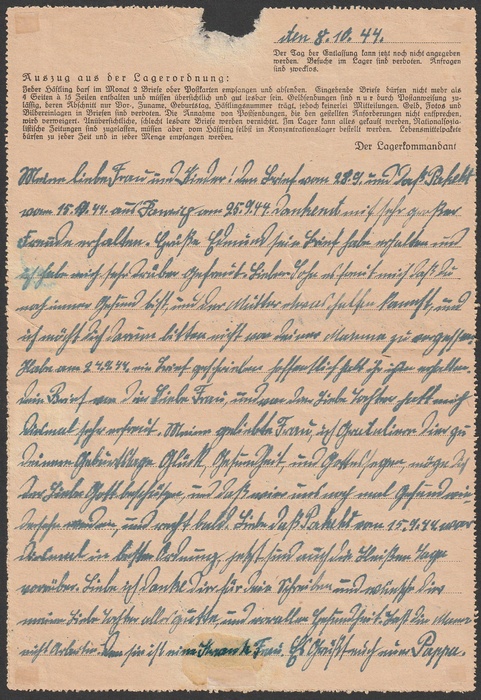 den 8.10.44.
Der Tag der Entlassung kann jetzt noch nicht angegeben
werden. Besuche im Lager sind verboten. Anfragen
sind zwecklos.
Auszug aus der Lagerordnung:
Jeder Häftling darf im Monat 2 Briefe oder Postkarten empfangen und absenden. Eingehende Briefe dürfen nicht mehr als
4 Seiten à 15 Zeilen enthalten und müssen übersichtlich und gut lesbar sein. Geldsendungen sind nur durch Postanweisung zu-
lässig, deren Abschnitt nur Vor-, Zuname, Geburtstag, Häftlingsnummer trägt, jedoch keinerlei Mitteilungen. Geld, Fotos und
Bildereinlagen in Briefen sind verboten. Die Annahme von Postsendungen, die den gestellten Anforderungen nicht entsprechen,
wird verweigert. Unübersichtliche, schlecht lesbare Briefe werden vernichtet. Im Lager kann alles gekauft werden. Nationalsozia-
listische Zeitungen sind zugelassen, müssen aber vom Häftling selbst im Konzentrationslager bestellt werden. Lebensmittelpakete
dürfen zu jeder Zeit und in jeder Menge empfangen werden.
Der Lagerkommandant
Meine liebe Frau und Kinder! den Brief vom 28.9. und daß Pakekt
vom 15.9.44. aus am 25.9.44. dankend mit sehr großer
Freude erhalten. Edmund sein Brief habe erhalten und
ich habe mich sehr drüber gefreut. Lieber Sohn es freut mich daß du
noch immer Gesund bist, und der Mutter helfen kannst, und
ich möcht dich darum bitten nicht von deiner Mamma zu vergessen
Habe am 24.9.44. ein Brief geschrieben hoffentlich habt ihr ihn erhalten.
dein Brief von dir Liebe Frau, und von der Liebe Tochter hatt mich
diesmal sehr erfreut. Meine geliebte Frau, ich Gratuliere dier zu
deinem Geburtstage Glück, Gesundheit und Gottessegen, möge dich
der Liebe Gott beschützen, und daß wir uns noch mal Gesund wie-
dersehn werden, und recht bald. Liebe daß Pakekt vom 15.9.44. war
diesmal in bester Ordnung, jetzt sind auch die Tage
vorüber. Liebe ich danke dir für dein Schreiben und wünsche dier
meine Liebe Tochter alles gutte, und vor allem Gesundheit. Laß die Mama
nicht Arbeiten den sie ist eine Kranke Frau. Es Grüßt euch euer Pappa.